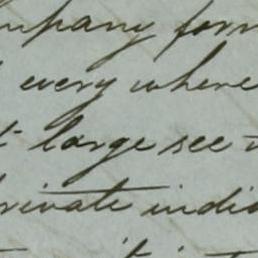 mpany form
every where
t large see
rivate indi